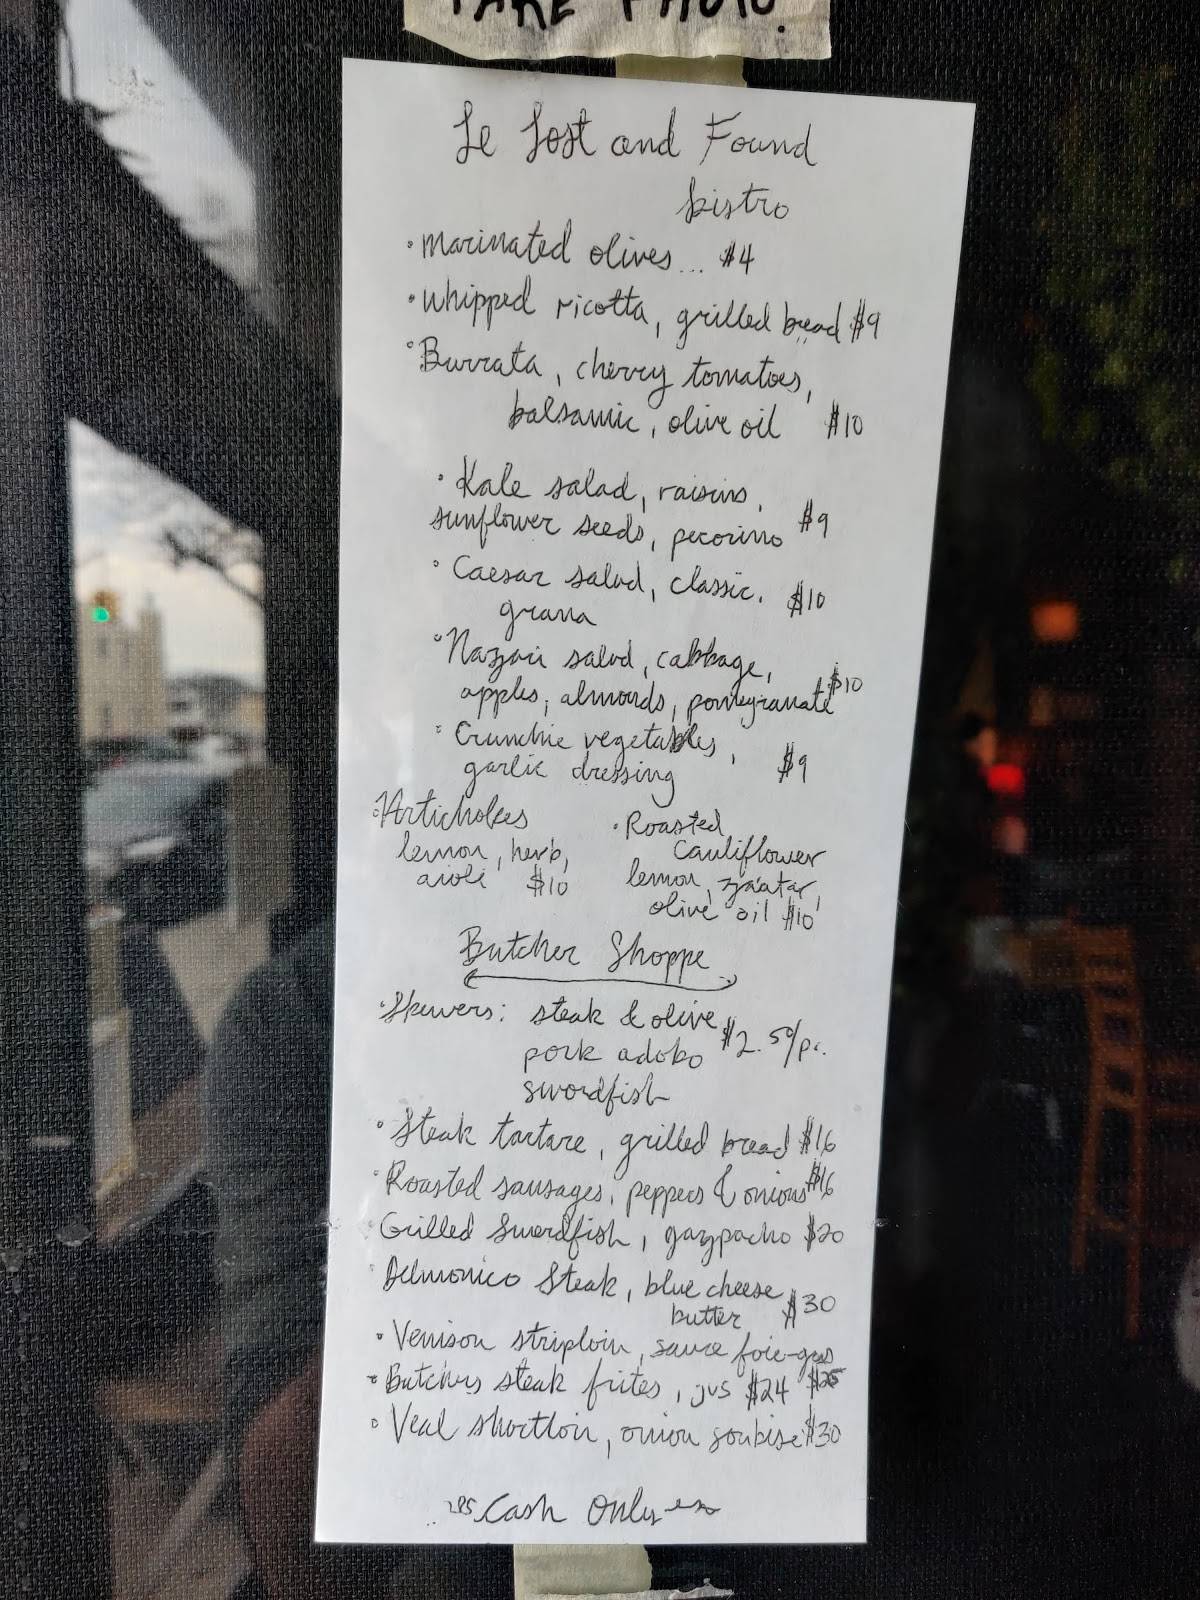 TAKE PHOTO.
Le Lost and Found
bistro
• Marinated olives... $4
• Whipped ricotta, grilled bread $9
• Burrata, cherry tomatoes,
balsamic, olive oil $10
• Kale salad, raisins,
sunflower seeds, pecorino $9
• Caesar salad, classic, $10
grana
• Nazari salad, cabbage,
apples, almonds, pomegranate $10
• Crunchie vegetables,
garlic dressing $9
• Artichokes
lemon, herb,
aioli $10
• Roasted
Cauliflower
lemon, za'atar,
olive oil $10
Butcher Shoppe
• Skewers: steak & olive
pork adobo $2.50/pc.
swordfish
• Steak tartare, grilled bread $16
• Roasted sausages, peppers & onions $16
Grilled Swordfish, gazpacho $20
• Delmonico Steak, blue cheese
butter $30
• Venison striploin, sauce foie-gras
$25
• Butchers steak frites, jus $24
• Veal shortloin, onion soubise $30
Cash Only